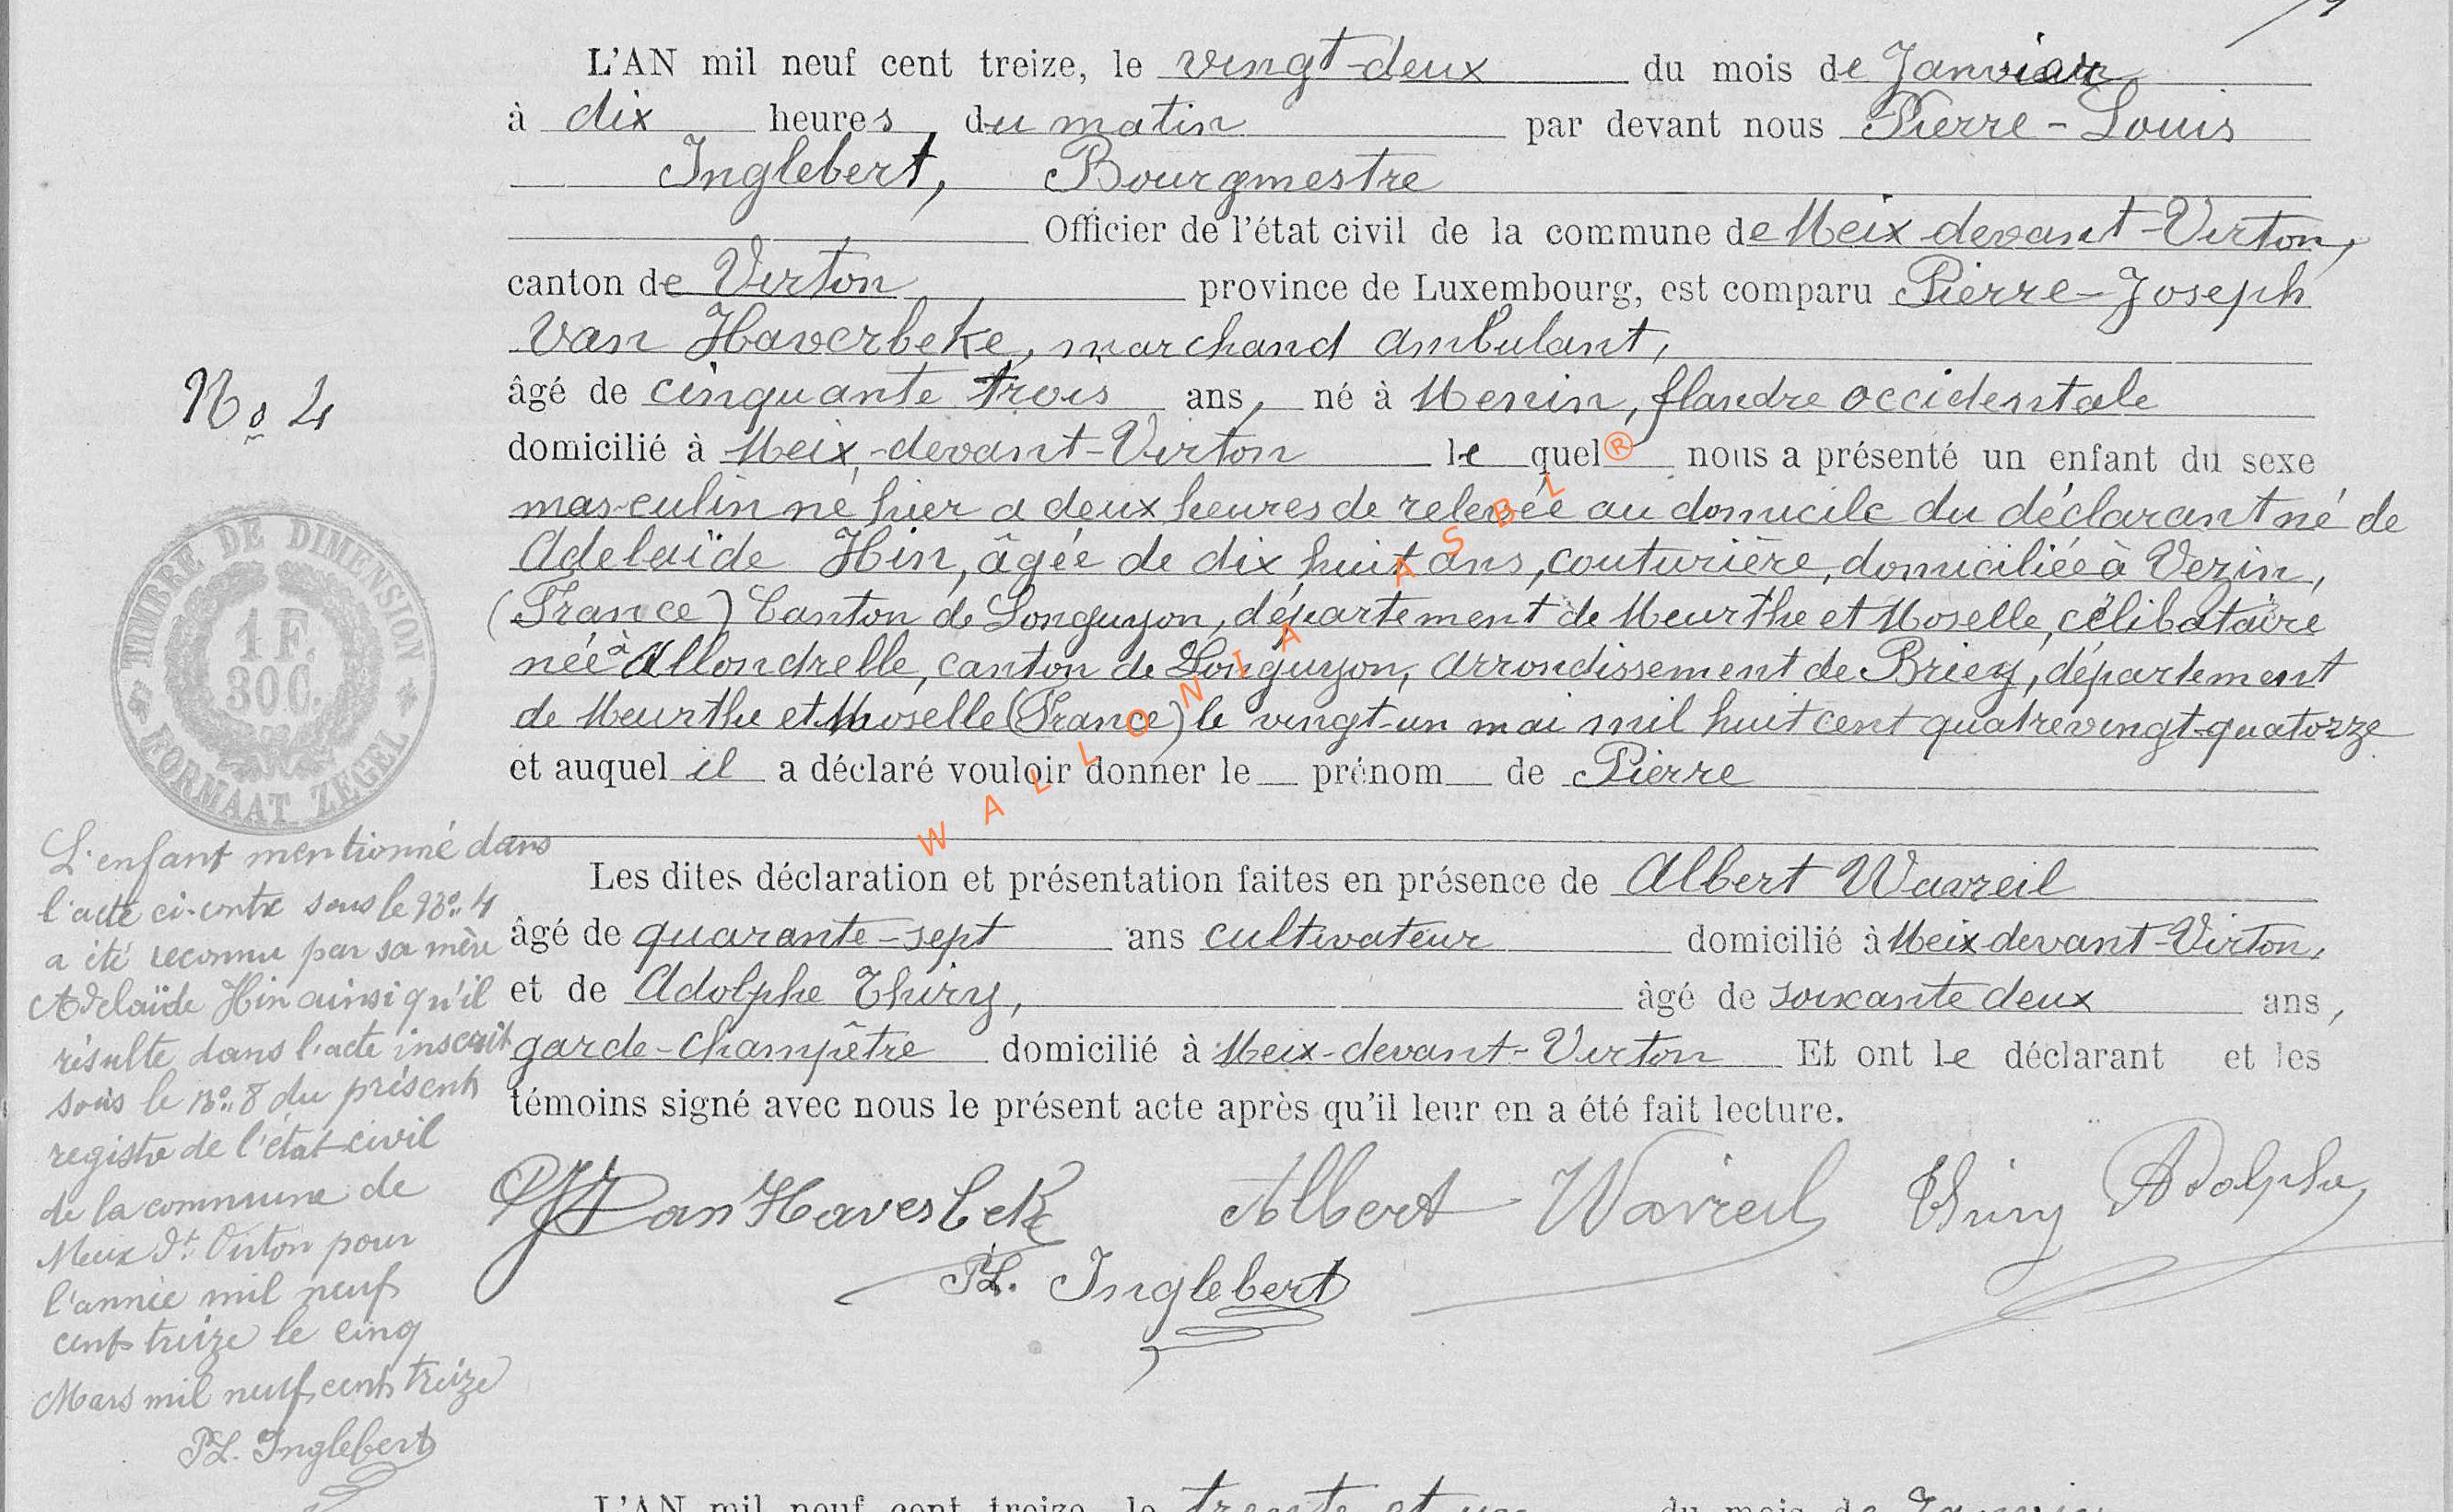 L'AN mil neuf cent treize, le vingt-deux du mois de Janvier
à dix heures du matin par devant nous Pierre-Louis
Inglebert, Bourgmestre
Officier de l'état civil de la commune de Meix-devant-Virton,
canton de Virton province de Luxembourg, est comparu Pierre-Joseph
Van Haverbeke, marchand ambulant,
âgé de cinquante trois ans, né à Menin, flandre occidentale
domicilié à Meix-devant-Virton lequel nous a présenté un enfant du sexe
masculin né hier a deux heures de relevée au domicile du déclarant né de
Adelaïde Hin, âgée de dix huit ans, couturière, domiciliée à Vezin,
(France) Canton de Longuyon, département de Meurthe et Moselle, célibataire
née à Allondrelle, canton de Longuyon, arrondissement de Briey, département
de Meurthe et Moselle (France) le vingt-un mai mil huit cent quatrevingt-quatorze
et auquel il a déclaré vouloir donner le prénom de Pierre
Les dites déclaration et présentation faites en présence de Albert Wavreil
âgé de quarante-sept ans cultivateur domicilié à Meix-devant-Virton,
et de Adolphe Thiry, âgé de soixante deux ans,
garde-champêtre domicilié à Meix-devant-Virton Et ont le déclarant et les
témoins signé avec nous le présent acte après qu'il leur en a été fait lecture.
PJ Van Haverbeke Albert Wavreil Thiry Adolphe
PL. Inglebert
No 4
TIMBRE DE DIMENSION
1 F.
30 C.
FORMAAT ZEGEL
L'enfant mentionné dans
l'acte ci-contre sous le No. 4
a été reconnu par sa mère
Adelaïde Hin ainsi qu'il
résulte dans l'acte inscrit
sous le No. 8 du présent
registre de l'état-civil
de la commune de
Meix dt Virton pour
l'année mil neuf
cent treize le cinq
Mars mil neuf cent treize
PL. Inglebert
WALLONIA ASBL ®
L'AN mil neuf cent treize, le trente et un du mois de Janvier